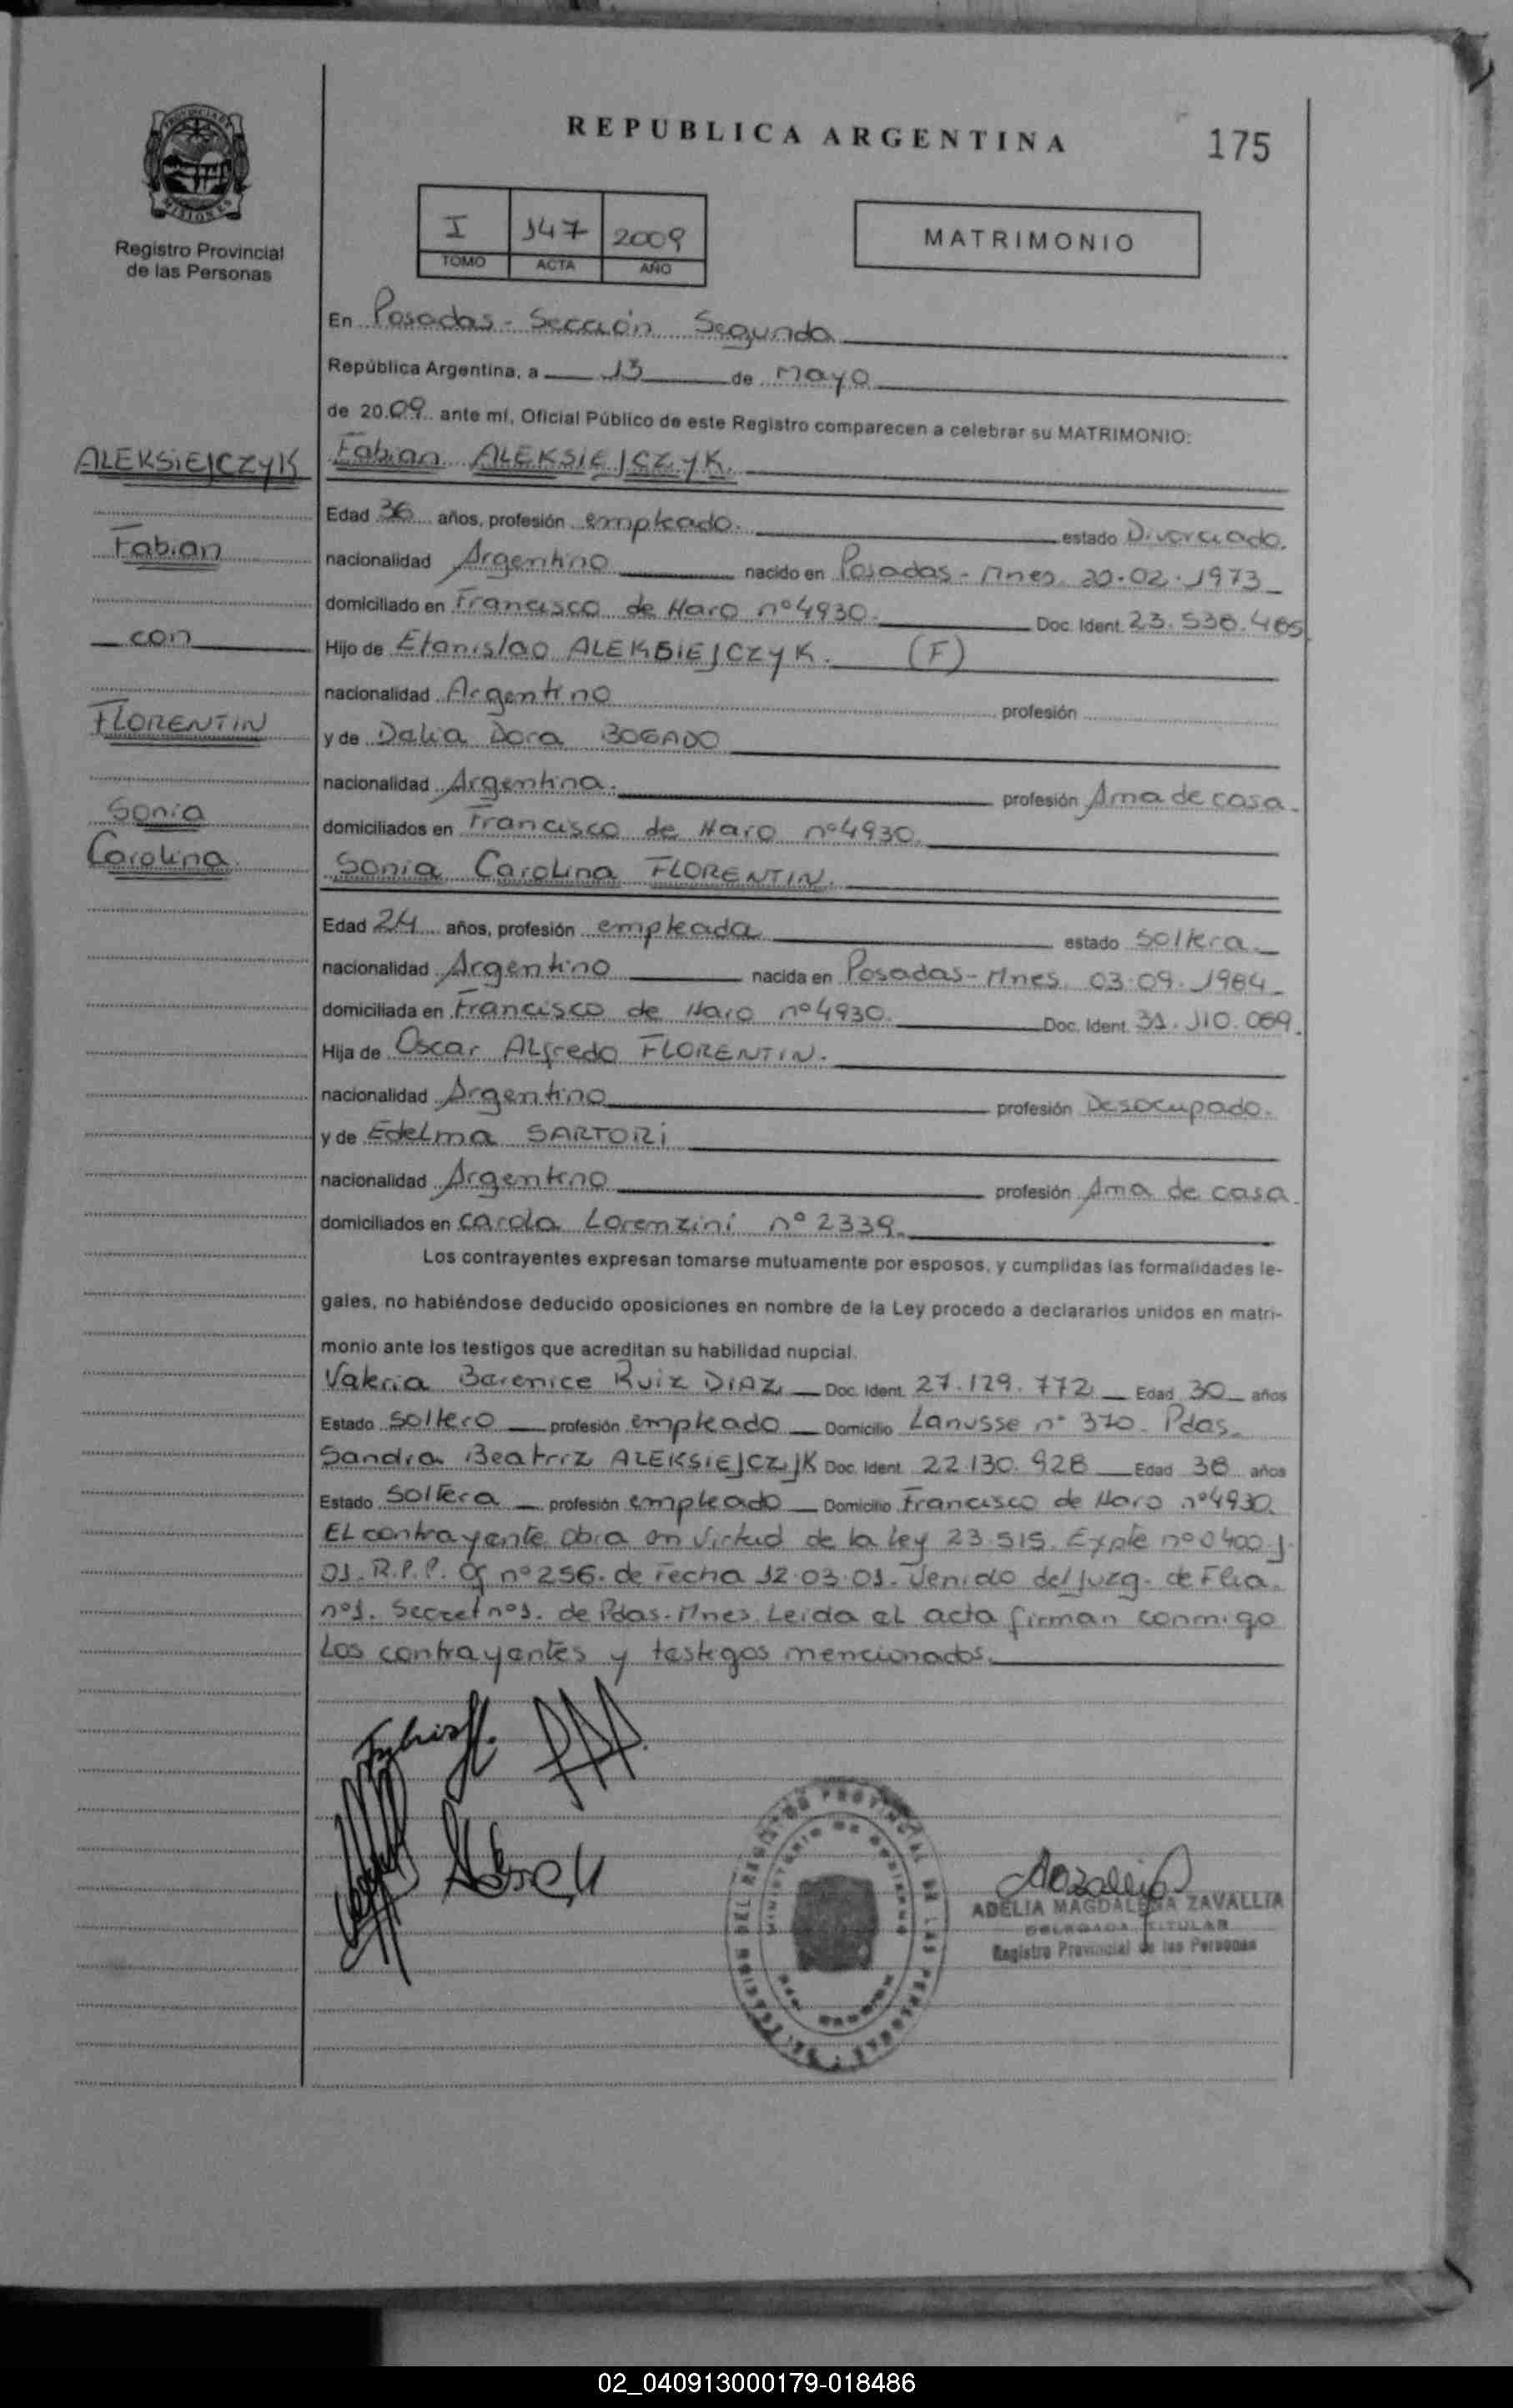 REPUBLICA ARGENTINA
175
PROVINCIA DE MISIONES
Registro Provincial
de las Personas
I 147 2009
TOMO ACTA AÑO
MATRIMONIO
En Posadas - Sección Segunda
República Argentina, a 13 de Mayo
de 2009 ante mí, Oficial Público de este Registro comparecen a celebrar su MATRIMONIO:
ALEKSIEJCZYK
Fabian ALEKSIEJCZYK.
Edad 36 años, profesión empleado. estado Divorciado.
Fabian
nacionalidad Argentino nacido en Posadas - Mnes. 20.02.1973
domiciliado en Francisco de Haro nº 4930. Doc. Ident. 23.538.465
con
Hijo de Etanislao ALEKSIEJCZYK. (F)
nacionalidad Argentino profesión
FLORENTIN
y de Dalia Dora BOGADO
nacionalidad Argentina. profesión Ama de casa.
Sonia
domiciliados en Francisco de Haro nº 4930.
Carolina
Sonia Carolina FLORENTIN.
Edad 24 años, profesión empleada estado soltera.
nacionalidad Argentino nacida en Posadas - Mnes. 03.09.1984
domiciliada en Francisco de Haro nº 4930. Doc. Ident. 31.110.069.
Hija de Oscar Alfredo FLORENTIN.
nacionalidad Argentino profesión Desocupado.
y de Edelma SARTORI
nacionalidad Argentino profesión Ama de casa.
domiciliados en Carola Lorenzini nº 2339.
Los contrayentes expresan tomarse mutuamente por esposos, y cumplidas las formalidades le-
gales, no habiéndose deducido oposiciones en nombre de la Ley procedo a declararlos unidos en matri-
monio ante los testigos que acreditan su habilidad nupcial.
Valeria Barenice Ruiz DIAZ Doc. Ident. 27.129.772 Edad 30 años
Estado soltero profesión empleado Domicilio Lanusse nº 370 - Pdas.
Sandra Beatriz ALEKSIEJCZYK Doc. Ident. 22.130.928 Edad 38 años
Estado soltera profesión empleado Domicilio Francisco de Haro nº 4930.
El contrayente obra en virtud de la ley 23.515. Expte nº 0400 J.
01. R.P.P. Of nº 256. de fecha 12.03.01. Venido del Juzg. de Flia.
nº 1. Secret nº 1. de Pdas - Mnes. Leida el acta firman conmigo
Los contrayentes y testigos mencionados.
ADELIA MAGDALENA ZAVALLIA
DELEGADA TITULAR
Registro Provincial de las Personas
02_040913000179-018486